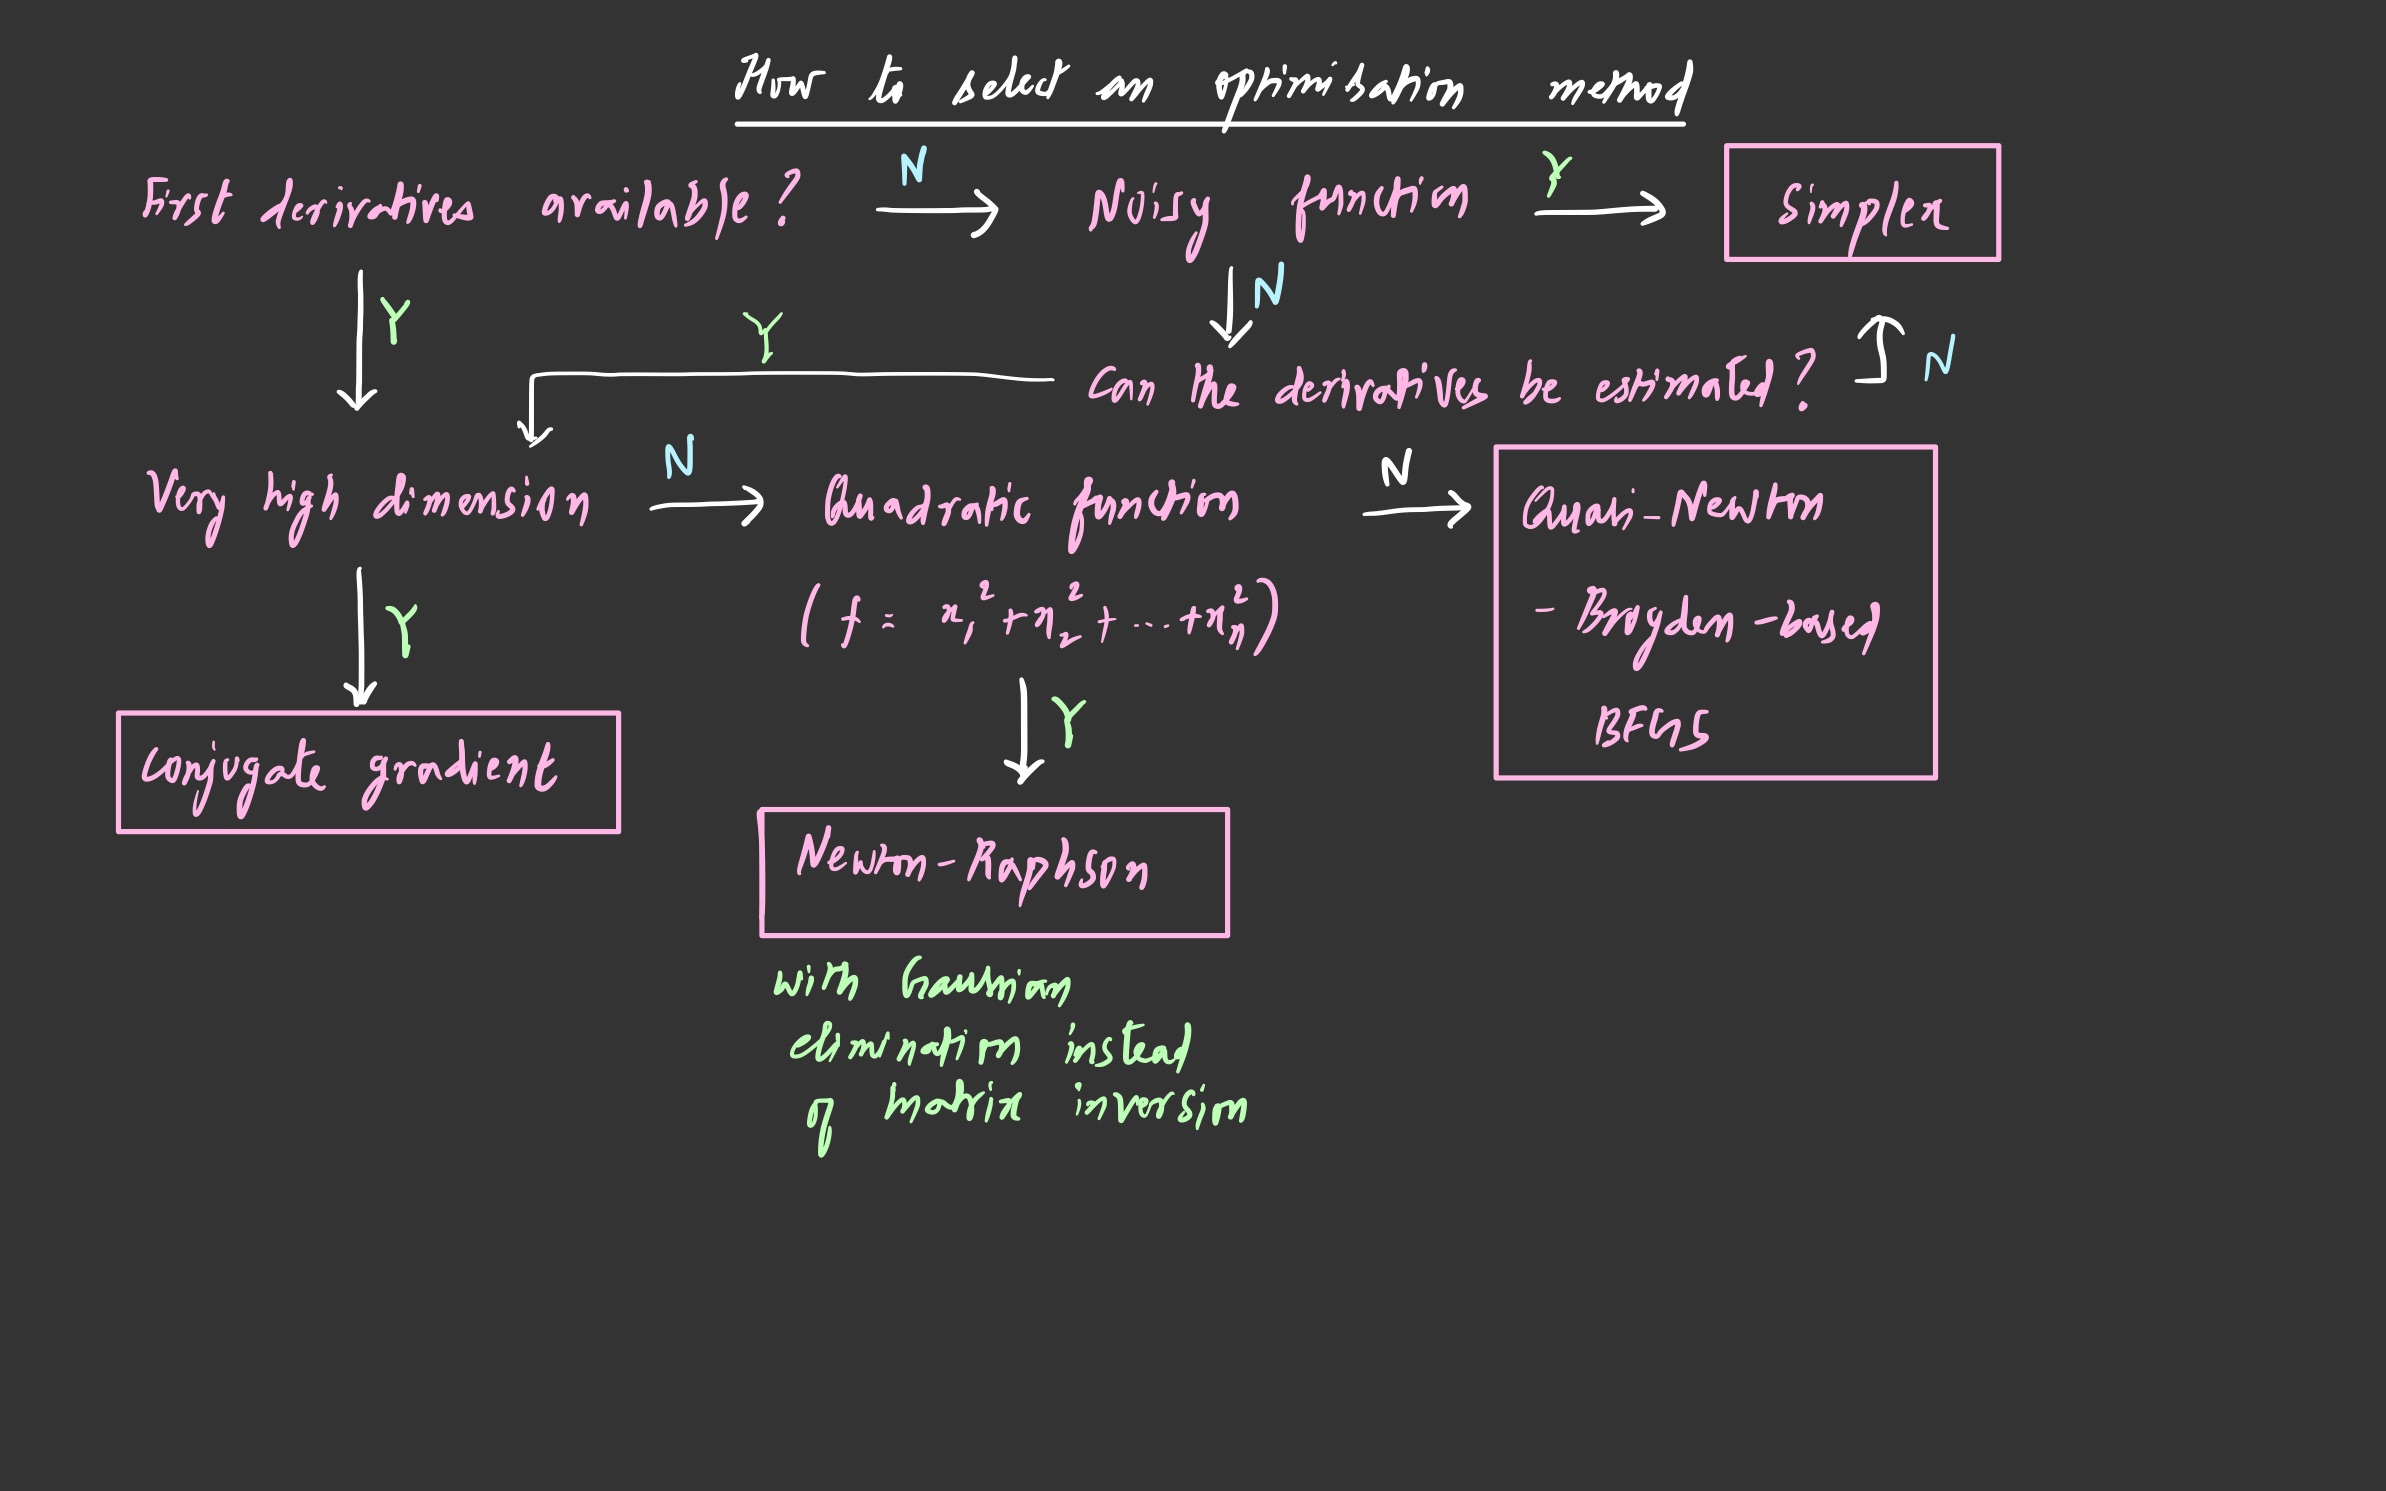 How to select an optimisation method
First derivatives available? N Noisy function Y Simplex
Y N
Y Can the derivatives be estimated? N
Very high dimension N Quadratic function N Quasi-Newton
Y (f = x₁² + x₂² + ... + xₙ²) - Broyden-based
Y BFGS
Conjugate gradient
Newton-Raphson
with Gaussian
elimination instead
of matrix inversion